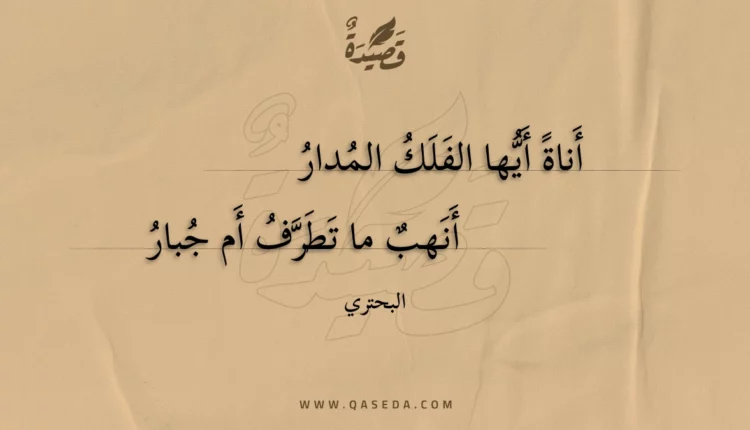 قَصِيدَةٌ
أَناةً أَيُّها الفَلَكُ المُدارُ
أَنَهبٌ ما تَطَرَّفُ أَم جُبارُ
البحتري
WWW.QASEDA.COM